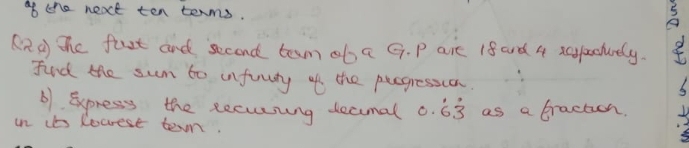 of the next ten terms.
Q2a) The first and second term of a G.P are 18 and 4 respectively.
Find the sum to infinity of the progression.
b) Express the recurring decimal 0.6̇3̇ as a fraction.
in its lowest term.
the